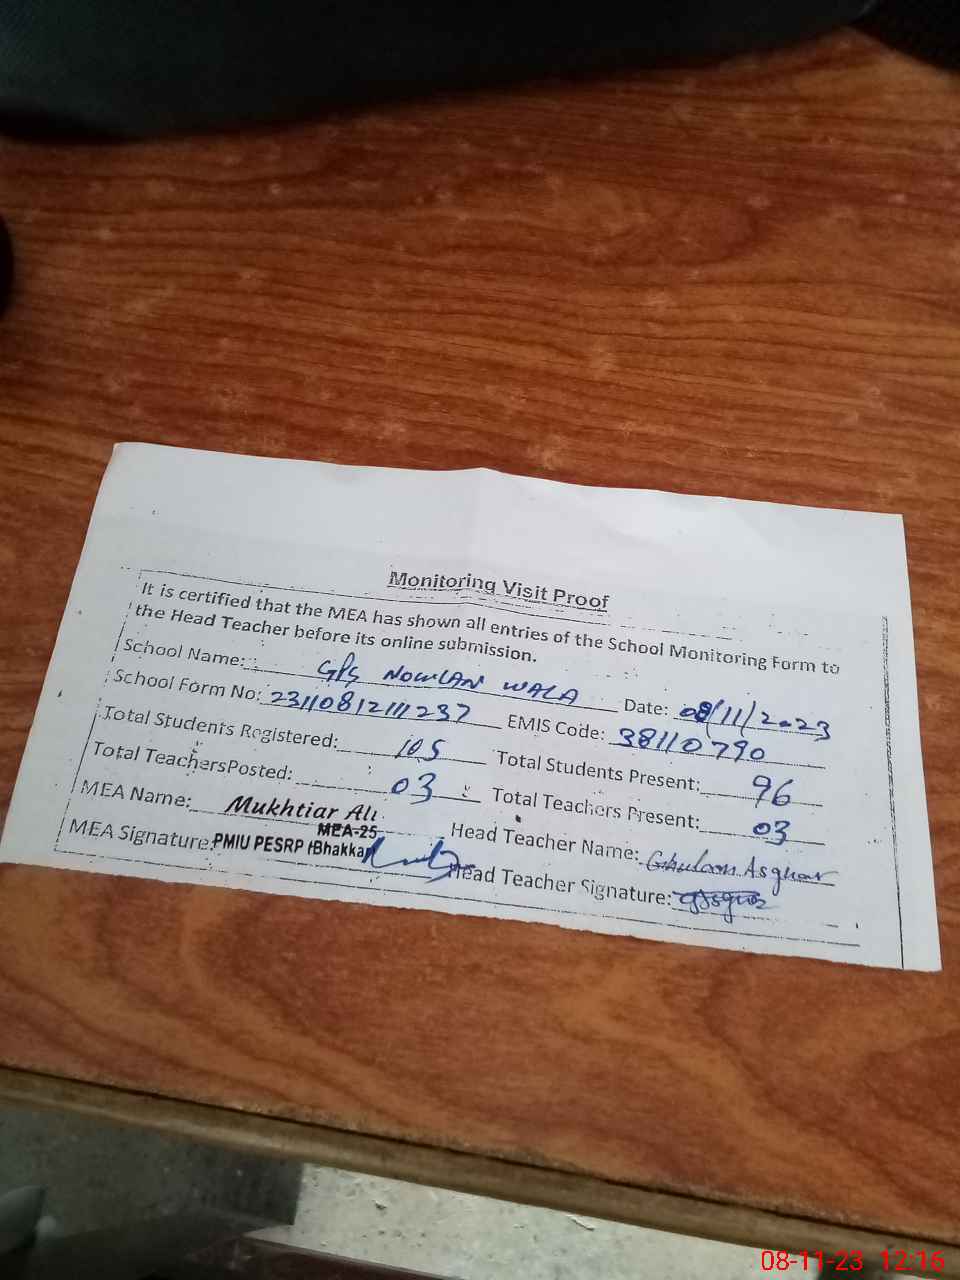 Monitoring Visit Proof
It is certified that the MEA has shown all entries of the School Monitoring Form to
the Head Teacher before its online submission.
School Name: GPS NOWLAN WALA Date: 08/11/2023
School Form No: 23110812111237 EMIS Code: 38110790
Total Students Registered: 105 Total Students Present: 96
Total TeachersPosted: 03 Total Teachers Present: 03
MEA Name: Mukhtiar Ali Head Teacher Name: Ghulam Asghar
MEA-25
MEA Signature: PMIU PESRP (Bhakkar) Head Teacher Signature:
08-11-23 12:16